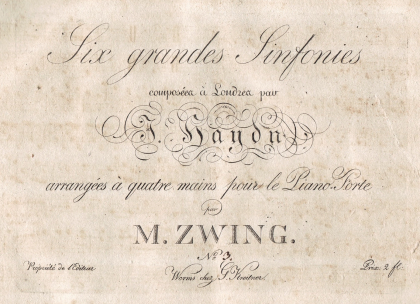 Six grandes Sinfonies
composées à Londres par
J. Haydn
arrangées à quatre mains pour le Piano-Forte
par
M. ZWING.
No. 3.
Propriété de l'Editeur
Prix 2 fl.
Worms chez G. Kreitner.